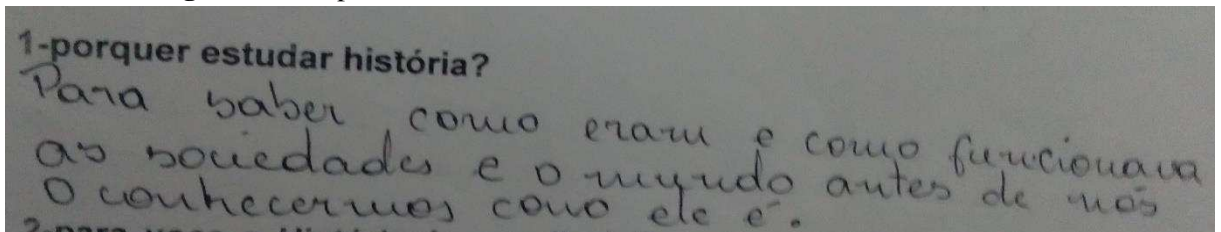 1-porquer estudar história?
Para saber como eram e como funcionava
as sociedades e o mundo antes de nós
o conhecermos como ele é.